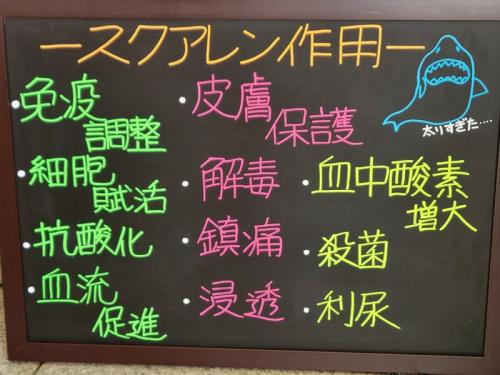 ースクアレン作用ー
太りすぎた....
・免疫
調整
・細胞
賦活
・抗酸化
・血流
促進
・皮膚
保護
・解毒
・鎮痛
・浸透
・血中酸素
増大
・殺菌
・利尿